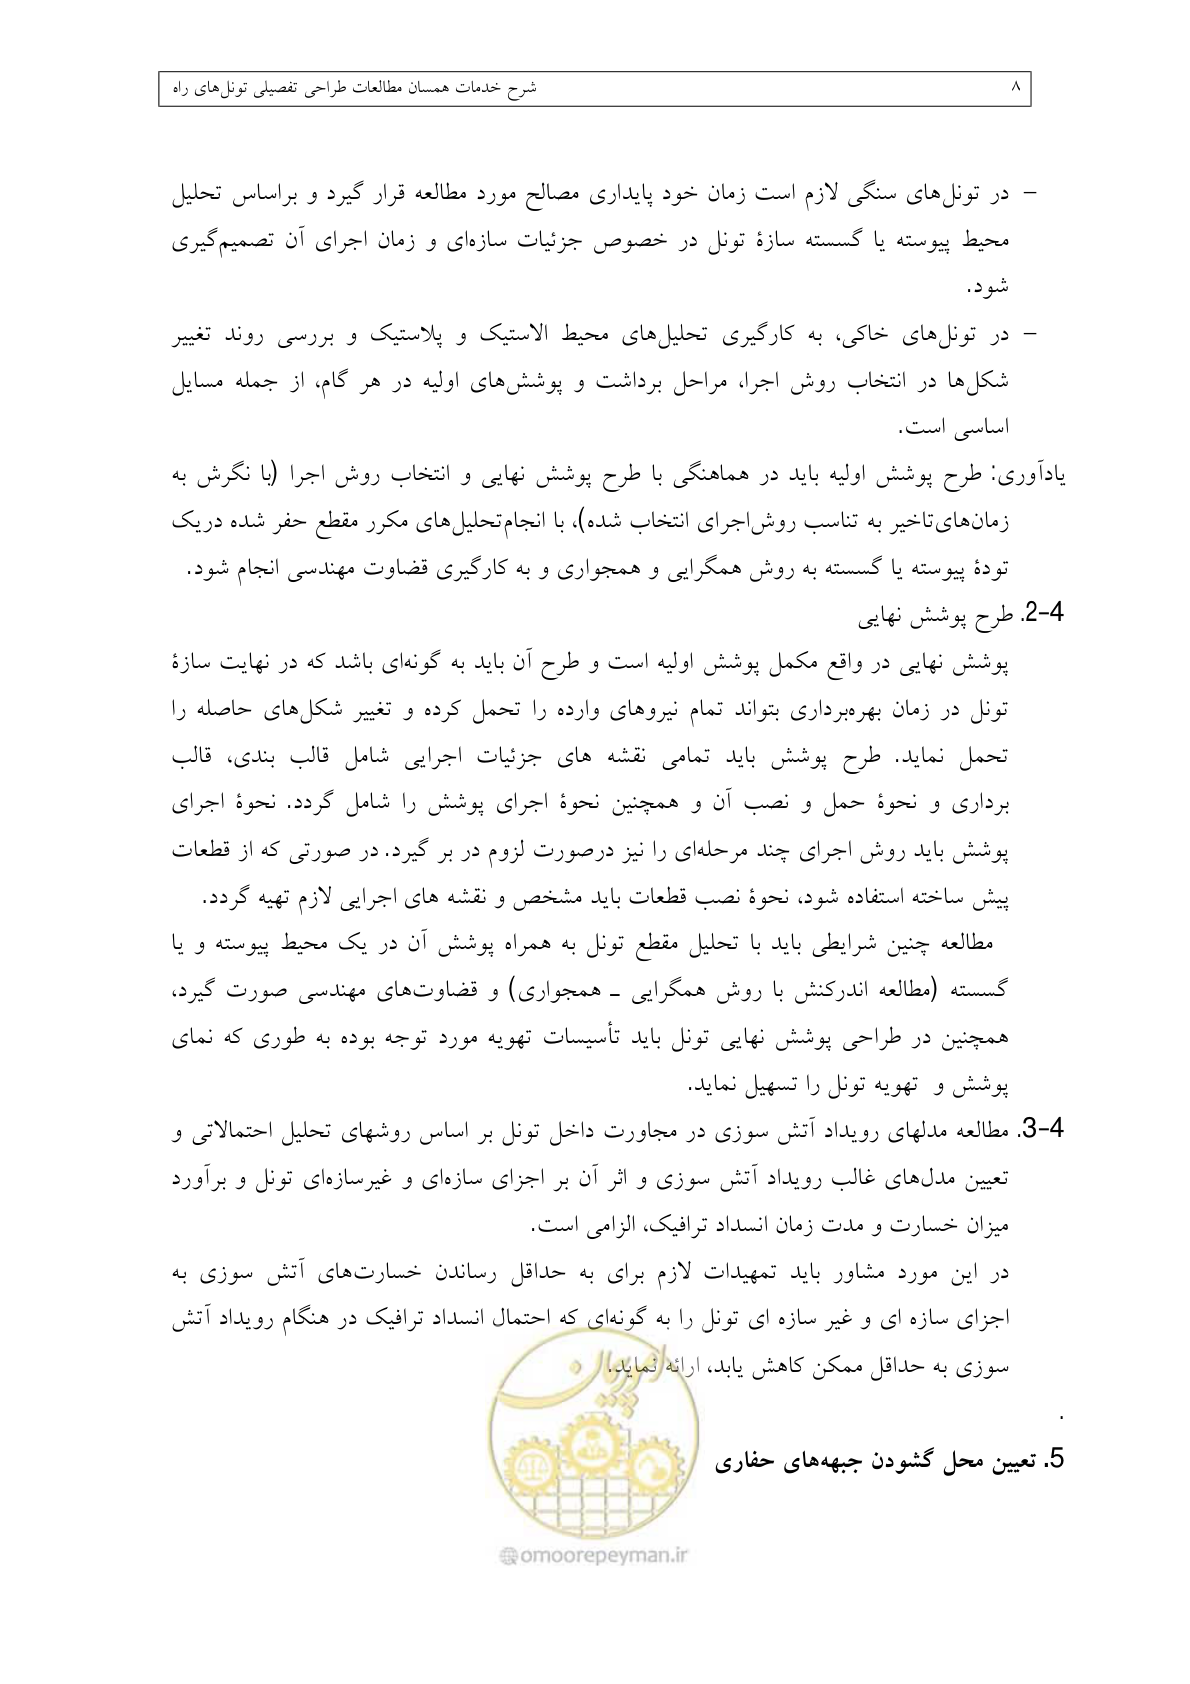 ۸ شرح خدمات همسان مطالعات طراحی تفصیلی تونل‌های راه
– در تونل‌های سنگی لازم است زمان خود پایداری مصالح مورد مطالعه قرار گیرد و براساس تحلیل
محیط پیوسته یا گسسته سازۀ تونل در خصوص جزئیات سازه‌ای و زمان اجرای آن تصمیم‌گیری
شود.
– در تونل‌های خاکی، به کارگیری تحلیل‌های محیط الاستیک و پلاستیک و بررسی روند تغییر
شکل‌ها در انتخاب روش اجرا، مراحل برداشت و پوشش‌های اولیه در هر گام، از جمله مسایل
اساسی است.
یادآوری: طرح پوشش اولیه باید در هماهنگی با طرح پوشش نهایی و انتخاب روش اجرا (با نگرش به
زمان‌های‌تاخیر به تناسب روش‌اجرای انتخاب شده)، با انجام‌تحلیل‌های مکرر مقطع حفر شده دریک
تودۀ پیوسته یا گسسته به روش همگرایی و همجواری و به کارگیری قضاوت مهندسی انجام شود.
2-4. طرح پوشش نهایی
پوشش نهایی در واقع مکمل پوشش اولیه است و طرح آن باید به گونه‌ای باشد که در نهایت سازۀ
تونل در زمان بهره‌برداری بتواند تمام نیروهای وارده را تحمل کرده و تغییر شکل‌های حاصله را
تحمل نماید. طرح پوشش باید تمامی نقشه های جزئیات اجرایی شامل قالب بندی، قالب
برداری و نحوۀ حمل و نصب آن و همچنین نحوۀ اجرای پوشش را شامل گردد. نحوۀ اجرای
پوشش باید روش اجرای چند مرحله‌ای را نیز درصورت لزوم در بر گیرد. در صورتی که از قطعات
پیش ساخته استفاده شود، نحوۀ نصب قطعات باید مشخص و نقشه های اجرایی لازم تهیه گردد.
مطالعه چنین شرایطی باید با تحلیل مقطع تونل به همراه پوشش آن در یک محیط پیوسته و یا
گسسته (مطالعه اندرکنش با روش همگرایی ـ همجواری) و قضاوت‌های مهندسی صورت گیرد،
همچنین در طراحی پوشش نهایی تونل باید تأسیسات تهویه مورد توجه بوده به طوری که نمای
پوشش و تهویه تونل را تسهیل نماید.
3-4. مطالعه مدلهای رویداد آتش سوزی در مجاورت داخل تونل بر اساس روشهای تحلیل احتمالاتی و
تعیین مدل‌های غالب رویداد آتش سوزی و اثر آن بر اجزای سازه‌ای و غیرسازه‌ای تونل و برآورد
میزان خسارت و مدت زمان انسداد ترافیک، الزامی است.
در این مورد مشاور باید تمهیدات لازم برای به حداقل رساندن خسارت‌های آتش سوزی به
اجزای سازه ای و غیر سازه ای تونل را به گونه‌ای که احتمال انسداد ترافیک در هنگام رویداد آتش
سوزی به حداقل ممکن کاهش یابد، ارائه نماید.
.
5. تعیین محل گشودن جبهه‌های حفاری
امور پیمان
@omoorepeyman.ir